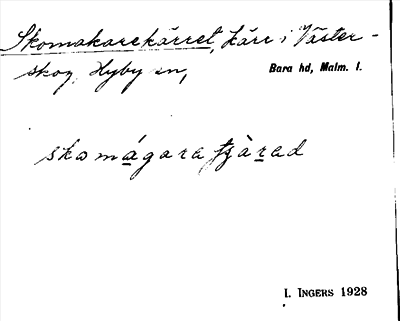 Skomakarekärret, kärr i Väster-
skog, Hyby sn,
Bara hd, Malm. l.
skomágara tjàrad
I. INGERS 1928